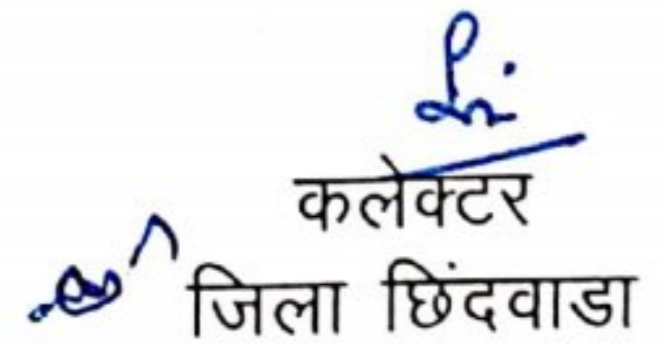 कलेक्टर
जिला छिंदवाडा